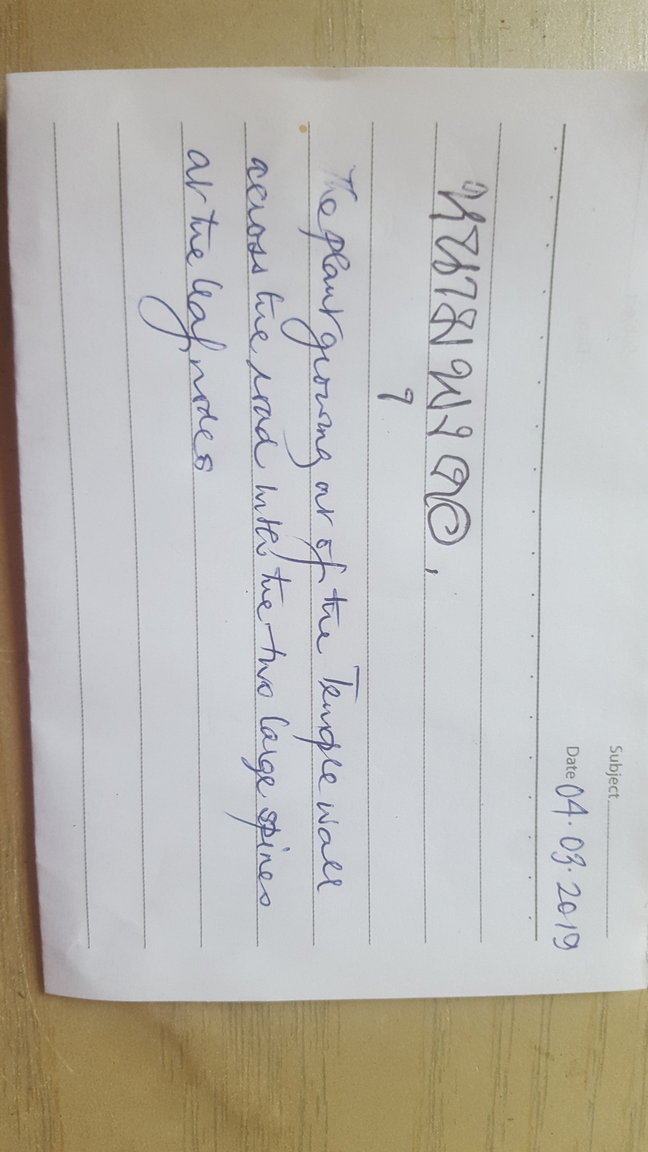 Subject
Date 04.03.2019
หนามพุงดอ,
The plant growing out of the Temple wall
across the road with the two large spines
at the leaf nodes